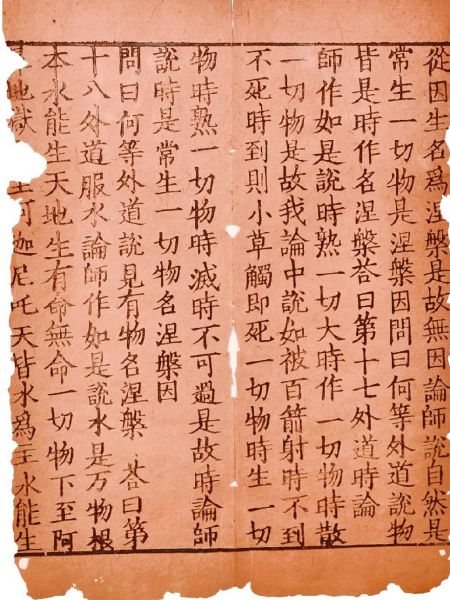 從因生名爲涅槃是故無因論師說自然是
常生一切物是涅槃因問曰何等外道說物
皆是時作名涅槃荅曰第十七外道時論
師作如是說時熟一切大時作一切物時散
一切物是故我論中說如被百箭射時不到
不死時到則小草觸即死一切物時生一切
物時熟一切物時滅時不可過是故時論師
說時是常生一切物名涅槃因
問曰何等外道說見有物名涅槃 荅曰第
十八外道服水論師作如是說水是万物根
本水能生天地生有命無命一切物下至阿
地獄 至阿迦尼吒天皆水爲主水能生